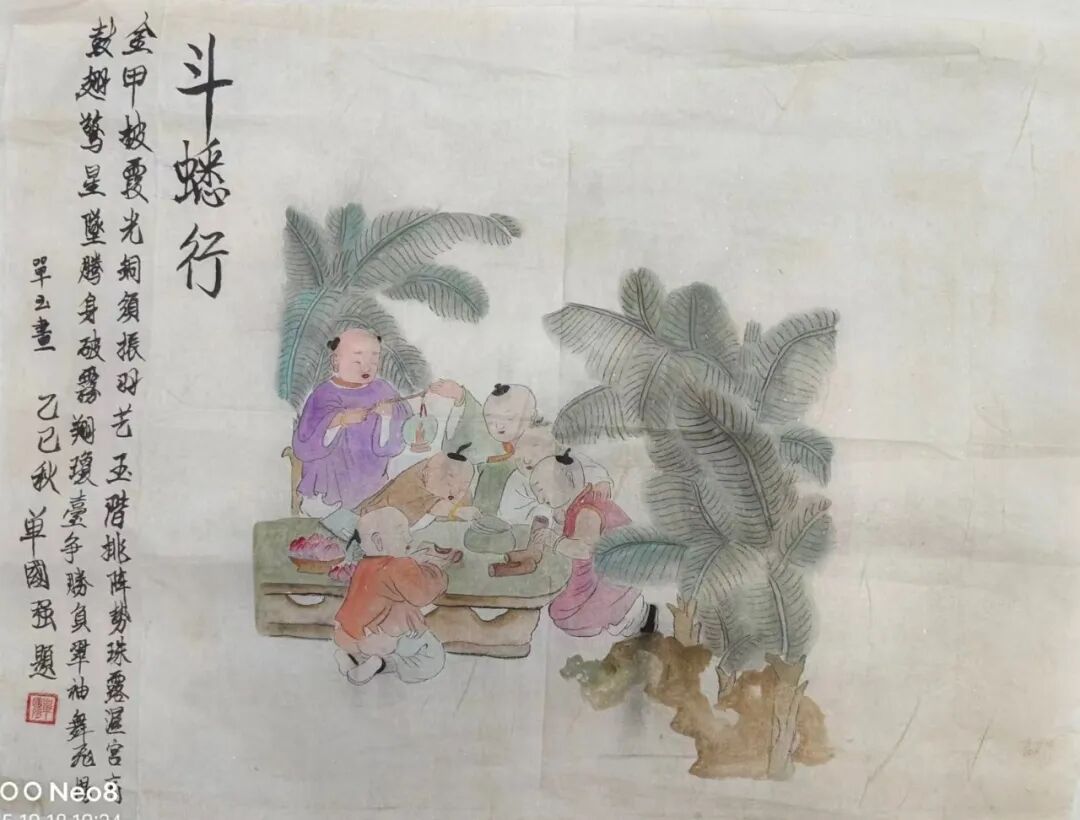 斗蟋行
金甲披霞光銅須振羽芒玉階挑阵勢珠露濕宮商
鼓翅驚星墜騰身破霧翔瓊臺争勝負翠袖舞飛
單玉畫 乙巳秋 单國强題
Neo8